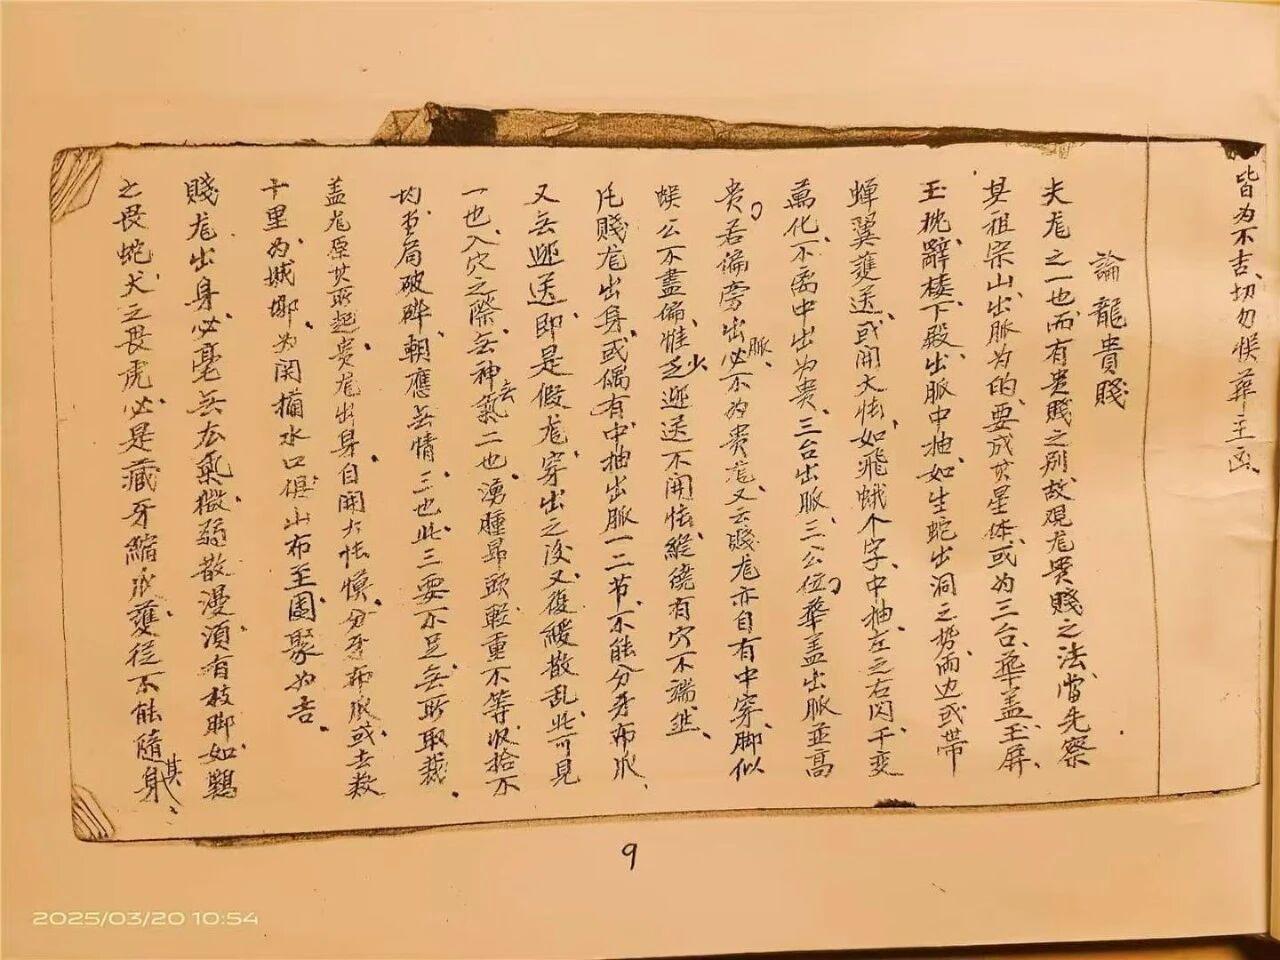 皆为不吉、切勿悮葬主凶、
論龍貴賤
夫尨之一也、而有贵賤之别、故覌尨贵賤之法、當先察
其祖宗山出脈为的、要成其星体、或为三台、華盖、玉屏、
玉枕、辭楼、下殿、出脈中抽、如生蛇出洞之势、两边或带
蝉翼護送、或開大帐、如飛蛾个字、中抽左之右閃、千变
萬化、不离中出为贵、三台出脈、三公位、華盖出脈並高
贵、若偏旁出脈、必不为贵尨、又云賤尨亦自有中穿、脚似
蜈公不盡偏、惟乏少迎送不開帐、縱繞有穴不端
凡賤尨出身、或偶有中抽出脈一二节、不能分牙布爪、
又無迎送、即是假尨、穿出之后、又復緩散乱、此可見
一也、入穴之際無神無氣、二也、湧腫昂頭、軽重不等、收拾不
均、书局破碎、朝應無情、三也、此三要不足、無所取裁、
盖尨原其所起、贵尨出身、自開大帐幙、分牙布爪、或去数
十里、为城郭、为関攔水口、俱山布至團聚为吉、
賤尨出身、必毫無尨氣、微弱散漫、須有枝脚、如鷄
之畏蛇、犬之畏虎、必是藏牙縮爪、護從不能隨其身、
9
2025/03/20 10:54